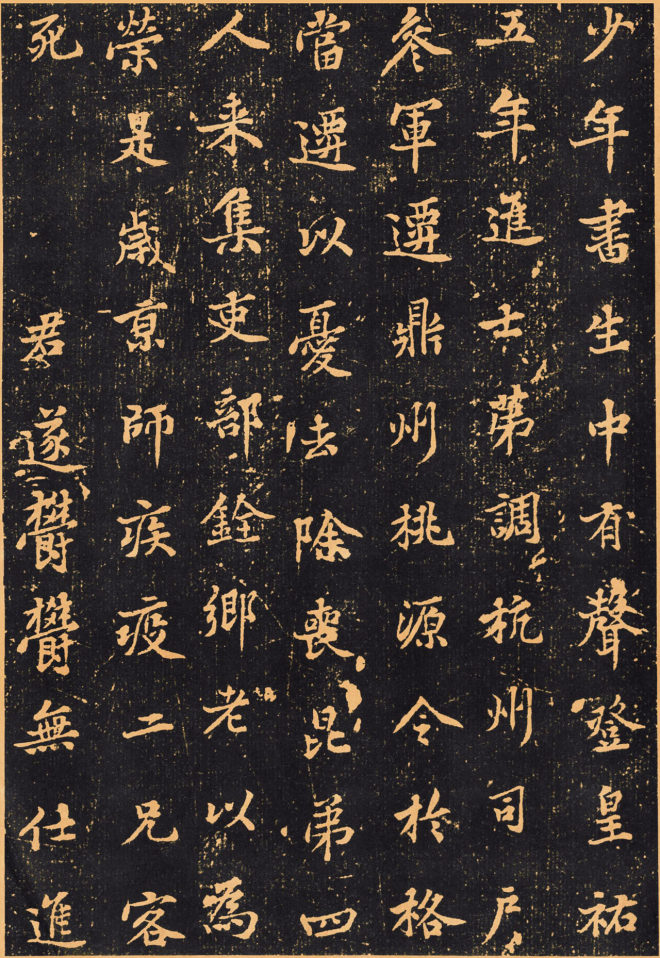 少年書生中有聲登皇祐
五年進士苐調杭州司戶
叅軍遷鼎州桃源令於格
當遷以憂法除喪昆弟四
人来集吏部銓鄉老以為
榮是歲京師疾疫二兄客
死君遂鬱鬱無仕進